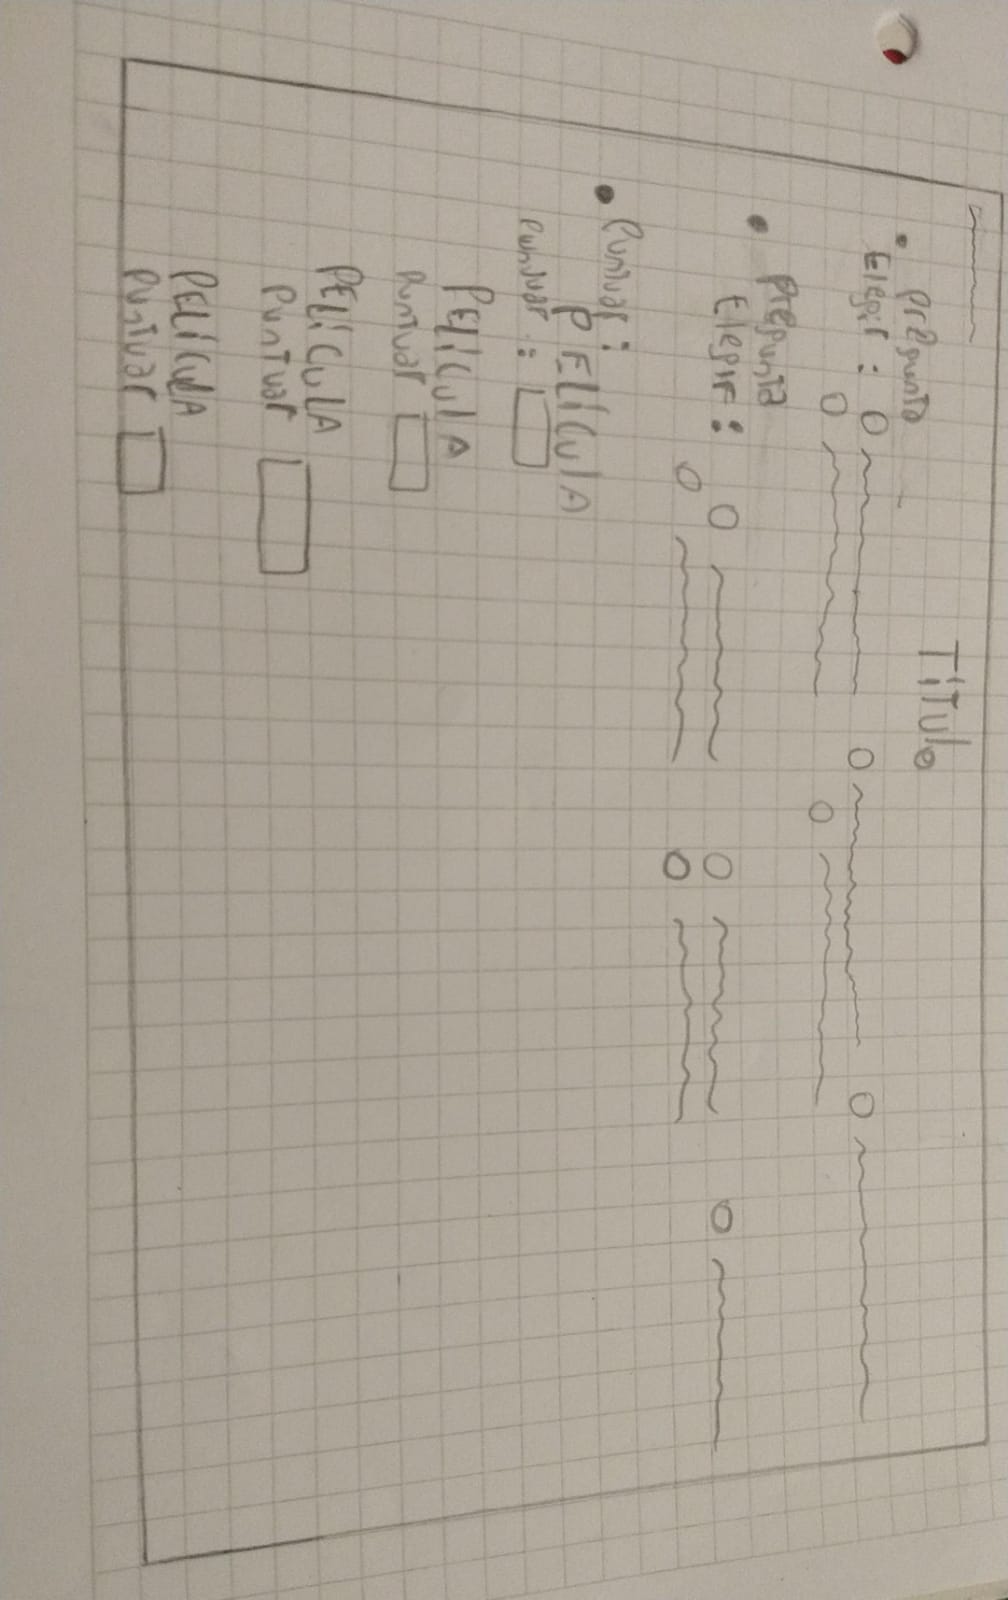 Titulo
• pregunta
Elegir :
• pregunta
Elegir :
• Puntuar :
PELÍCulA
Puntuar :
PELiCulA
Puntuar
PELÍCuLA
Puntuar
PELÍCulA
Puntuar